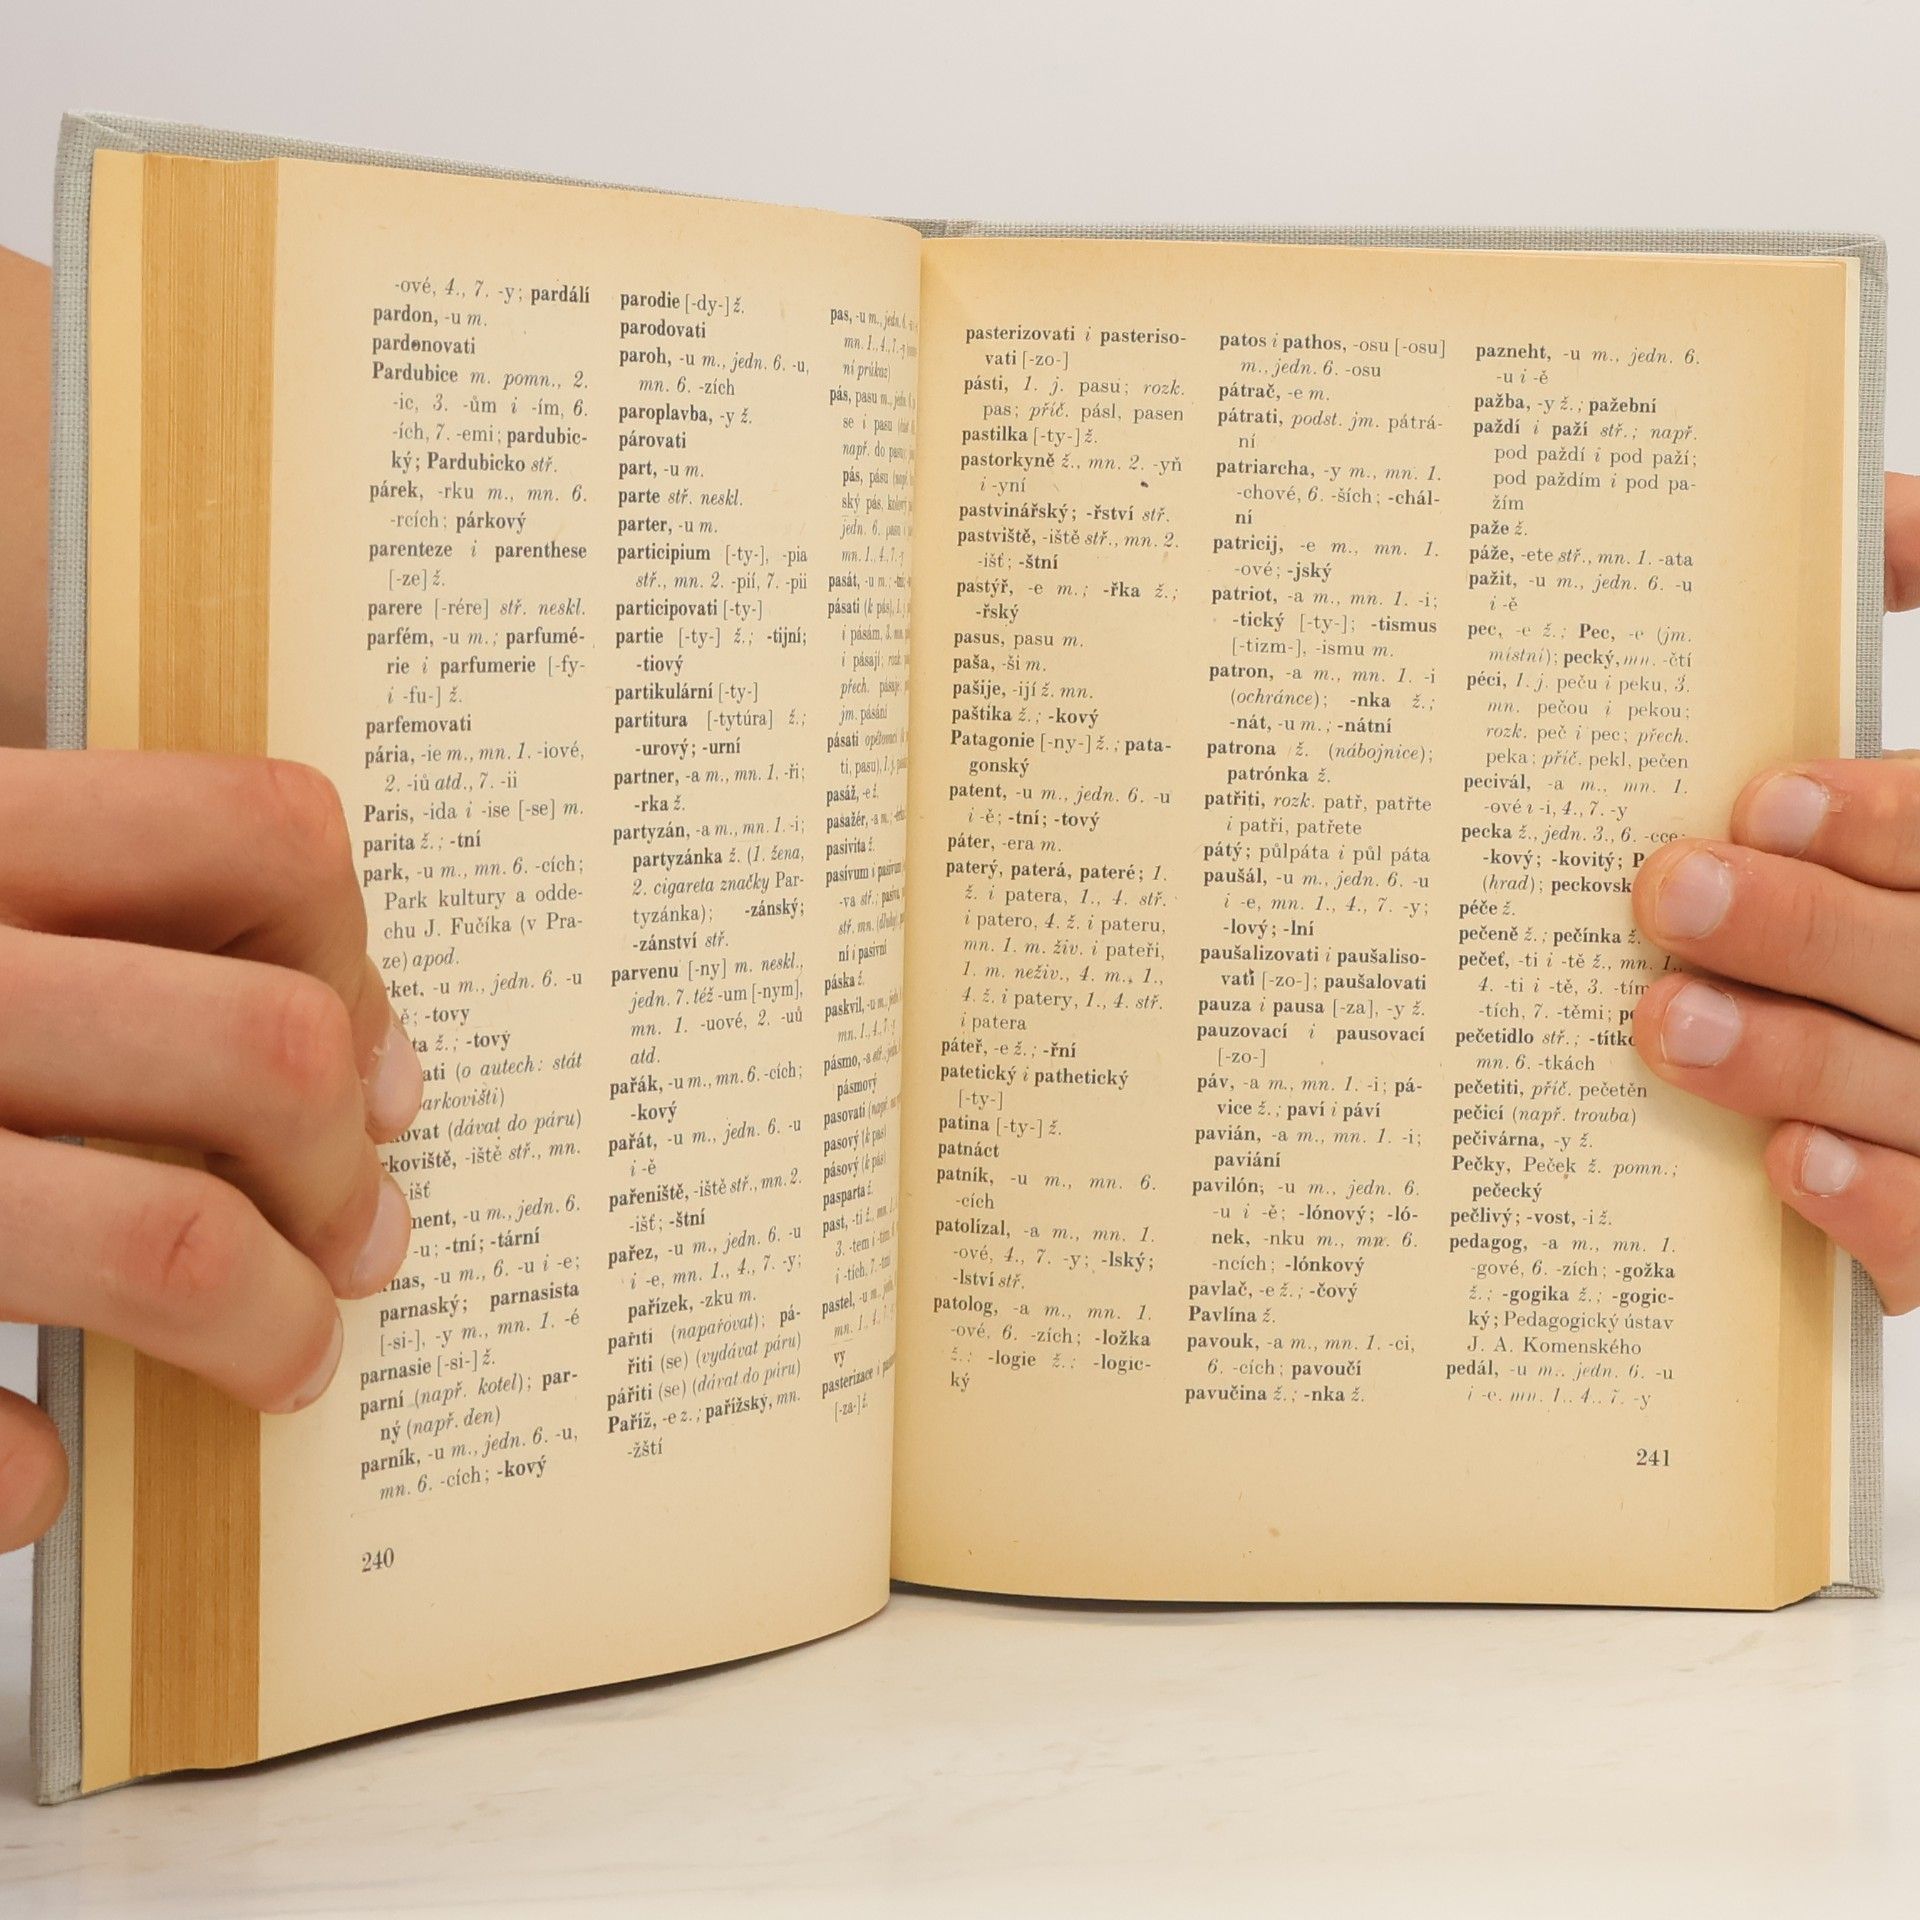 -ové, 4., 7. -y; pardálí
pardon, -u m.
pardonovati
Pardubice m. pomn., 2.
-ic, 3. -ům i -ím, 6.
-ích, 7. -emi; pardubic-
ký; Pardubicko stř.
párek, -rku m., mn. 6.
-rcích; párkový
parenteze i parenthese
[-ze] ž.
parere [-rére] stř. neskl.
parfém, -u m.; parfumé-
rie i parfumerie [-fy-
i -fu-] ž.
parfemovati
pária, -ie m., mn. 1. -iové,
2. -iů atd., 7. -ii
Paris, -ida i -ise [-se] m.
parita ž.; -tní
park, -u m., mn. 6. -cích;
Park kultury a odde-
chu J. Fučíka (v Pra-
ze) apod.
-u m., jedn. 6. -u
-tovy
ž.; -tový
(o autech: stát
(dávat do páru)
-iště stř., mn.
-išť
-u m., jedn. 6.
-u; -tní; -tární
-u m., 6. -u i -e;
parnaský; parnasista
[-si-], -y m., mn. 1. -é
parnasie [-si-] ž.
parní (např. kotel); par-
ný (např. den)
parník, -u m., jedn. 6. -u,
mn. 6. -cích; -kový
240
parodie [-dy-] ž.
parodovati
paroh, -u m., jedn. 6. -u,
mn. 6. -zích
paroplavba, -y ž.
párovati
part, -u m.
parte stř. neskl.
parter, -u m.
participium [-ty-], -pia
stř., mn. 2. -pií, 7. -pii
participovati [-ty-]
partie [-ty-] ž.; -tijní;
-tiový
partikulární [-ty-]
partitura [-tytúra] ž.;
-urový; -urní
partner, -a m., mn. 1. -ři;
-rka ž.
partyzán, -a m., mn. 1. -i;
partyzánka ž. (1. žena,
2. cigareta značky Par-
tyzánka); -zánský;
-zánství stř.
parvenu [-ny] m. neskl.,
jedn. 7. též -um [-nym],
mn. 1. -uové, 2. -uů
atd.
pařák, -u m., mn. 6. -cích;
-kový
pařát, -u m., jedn. 6. -u
i -ě
pařeniště, -iště stř., mn. 2.
-išť; -štní
pařez, -u m., jedn. 6. -u
i -e, mn. 1., 4., 7. -y;
pařízek, -zku m.
pařiti (napařovat); pá-
řiti (se) (vydávat páru)
pářiti (se) (dávat do páru)
Paříž, -e ž.; pařížský, mn.
-žští
pas, -u m., jedn. 6.
mn. 1., 4., 7. -y
ní průkaz)
pás, pasu m., jedn.
se i pasu
např. do pasu;
pás, pásu
ský pás,
jedn. 6.
mn. 1., 4., 7. -y
pasát, -u m.;
pásati (k pás), 1.
i pásám, 3. mn.
i pásají; rozk.
přech.
jm. pásání
pásati
ti, pasu), 1. j.
pasáž, -e ž.
pasažér, -a m.,
pasivita ž.
pasívum i
-va stř.;
stř. mn.
ní i pasivní
páska ž.
paskvil, -u m.,
mn. 1., 4., 7. -y
pásmo, -a stř.,
pásmový
pasovati
pasový (k pas)
pásový (k pás)
pasparta ž.
past, -ti ž.,
3. -tem i -tím
i -tích, 7. -tmi
pastel, -u m.,
mn. 1., 4., 7.
vý
pasterizace i
[-za-] ž.
pasterizovati i pasteriso-
vati [-zo-]
pásti, 1. j. pasu; rozk.
pas; příč. pásl, pasen
pastilka [-ty-] ž.
pastorkyně ž., mn. 2. -yň
i -yní
pastvinářský; -řství stř.
pastviště, -iště stř., mn. 2.
-išť; -štní
pastýř, -e m.; -řka ž.;
-řský
pasus, pasu m.
paša, -ši m.
pašije, -ijí ž. mn.
paštika ž.; -kový
Patagonie [-ny-] ž.; pata-
gonský
patent, -u m., jedn. 6. -u
i -ě; -tní; -tový
páter, -era m.
paterý, paterá, pateré; 1.
ž. i patera, 1., 4. stř.
i patero, 4. ž. i pateru,
mn. 1. m. živ. i pateři,
1. m. neživ., 4. m., 1.,
4. ž. i patery, 1., 4. stř.
i patera
páteř, -e ž.; -řní
patetický i pathetický
[-ty-]
patina [-ty-] ž.
patnáct
patník, -u m., mn. 6.
-cích
patolízal, -a m., mn. 1.
-ové, 4., 7. -y; -lský;
-lství stř.
patolog, -a m., mn. 1.
-ové, 6. -zích; -ložka
ž.; -logie ž.; -logic-
ký
patos i pathos, -osu [-osu]
m., jedn. 6. -osu
pátrač, -e m.
pátrati, podst. jm. pátrá-
ní
patriarcha, -y m., mn. 1.
-chové, 6. -ších; -chál-
ní
patricij, -e m., mn. 1.
-ové; -jský
patriot, -a m., mn. 1. -i;
-tický [-ty-]; -tismus
[-tizm-], -ismu m.
patron, -a m., mn. 1. -i
(ochránce); -nka ž.;
-nát, -u m.; -nátní
patrona ž. (nábojnice);
patrónka ž.
patřiti, rozk. patř, patřte
i patři, patřete
pátý; půlpáta i půl páta
paušál, -u m., jedn. 6. -u
i -e, mn. 1., 4., 7. -y;
-lový; -lní
paušalizovati i paušaliso-
vati [-zo-]; paušalovati
pauza i pausa [-za], -y ž.
pauzovací i pausovací
[-zo-]
páv, -a m., mn. 1. -i; pá-
vice ž.; paví i páví
pavián, -a m., mn. 1. -i;
paviání
pavilón, -u m., jedn. 6.
-u i -ě; -lónový; -ló-
nek, -nku m., mn. 6.
-ncích; -lónkový
pavlač, -e ž.; -čový
Pavlína ž.
pavouk, -a m., mn. 1. -ci,
6. -cích; pavoučí
pavučina ž.; -nka ž.
pazneht, -u m., jedn. 6.
-u i -ě
pažba, -y ž.; pažební
paždí i paží stř.; např.
pod paždí i pod paží;
pod paždím i pod pa-
žím
paže ž.
páže, -ete stř., mn. 1. -ata
pažit, -u m., jedn. 6. -u
i -ě
pec, -e ž.; Pec, -e (jm.
místní); pecký, mn. -čtí
péci, 1. j. peču i peku, 3.
mn. pečou i pekou;
rozk. peč i pec; přech.
peka; příč. pekl, pečen
pecivál, -a m., mn. 1.
-ové i -i, 4., 7. -y
pecka ž., jedn. 3., 6. -cce;
-kový; -kovitý;
(hrad);
péče ž.
pečeně ž.; pečínka ž.
pečeť, -ti i -tě ž., mn. 1.,
4. -ti i -tě, 3. -tím
-tích, 7. -těmi;
pečetidlo stř.;
mn. 6. -tkách
pečetiti, příč. pečetěn
pečicí (např. trouba)
pečivárna, -y ž.
Pečky, Peček ž. pomn.;
pečecký
pečlivý; -vost, -i ž.
pedagog, -a m., mn. 1.
-gové, 6. -zích; -gožka
ž.; -gogika ž.; -gogic-
ký; Pedagogický ústav
J. A. Komenského
pedál, -u m., jedn. 6. -u
i -e, mn. 1., 4., 7. -y
241